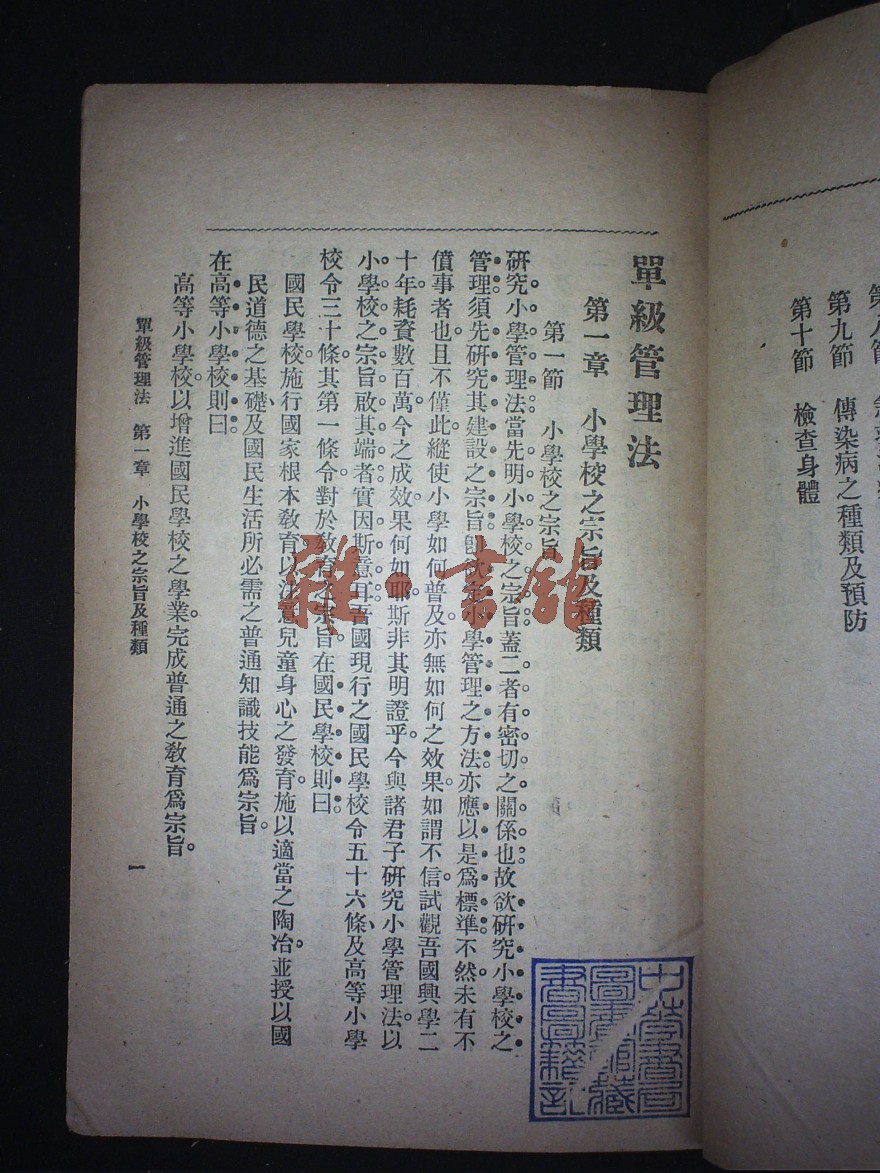 第九節　傳染病之種類及預防
第十節　檢查身體
單級管理法
第一章　小學校之宗旨及種類
第一節　小學校之宗旨
研究小學管理法當先明小學校之宗旨蓋二者有密切之關係也故欲研究小學校之
管理須先研究其建設之宗旨卽欲定小學管理之方法亦應以是爲標準不然未有不
僨事者也且不僅此縱使小學如何普及亦無如何之效果如謂不信試觀吾國興學二
十年耗資數百萬今之成效果何如耶斯非其明證乎今與諸君子研究小學管理法以
小學校之宗旨啟其端者實因斯意耳吾國現行之國民學校令五十六條、及高等小學
校令三十條。其第一條令對於敎育之宗旨在國民學校則曰。
國民學校施行國家根本敎育。以注意兒童身心之發育。施以適當之陶冶。並授以國
民道德之基礎、及國民生活所必需之普通知識技能爲宗旨。
在高等小學校則曰。
高等小學校。以增進國民學校之學業。完成普通之敎育爲宗旨。
單級管理法　第一章　小學校之宗旨及種類
一
雜·書館
中華書局
圖書館藏
書圖籍記